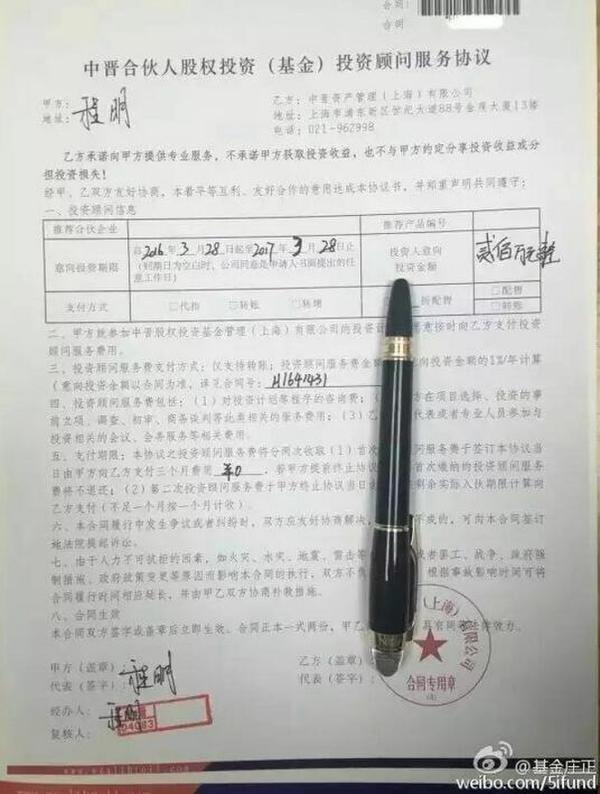 合同
合例
中晋合伙人股权投资（基金）投资顾问服务协议
甲方： 程明
地址：
乙方：中晋资产管理（上海）有限公司
地址：上海市浦东新区世纪大道88号金茂大厦13楼
电话：021-962998
乙方承诺向甲方提供专业服务，不承诺甲方获取投资收益，也不与甲方约定分享投资收益或分
担投资损失！
经甲、乙双方友好协商，本着平等互利、友好合作的意愿达成本协议书，并郑重声明共同遵守：
一、投资顾问信息
推荐合伙企业 推荐产品编号
意向投资期限 自2016年3月28日起至2017年3月28日止
（到期日为空白时，公司同意是申请人书面提出的任
意工作日）
投资人意向
投资金额 贰佰万元整
支付方式 □代扣 □转账 □转增 折配售 □配售
□转账
二、甲方就参加中晋股权投资基金管理（上海）有限公司的投资计 意按时向乙方支付投资
顾问服务费用。
三、投资顾问服务费支付方式：仅支持转账；投资顾问服务费金额 向投资金额的1%/年计算
（意向投资金额以合同为准，详见合同号： H1641431
四、投资顾问服务费包括：（1）对投资计 等程序的咨询费；（2） 方在项目选择、投资的事
前立项、调查、初审、商务谈判等此类相关的服务费用；（3）乙 代表或者专业人员参加与
投资相关的会议、会务服务等相关费用。
五、支付期限：本协议之投资顾问服务费将分两次收取（1）首次 顾问服务费于签订本协议当
日由甲方向乙方支付三个月费用 ¥0 ，若甲方提前终止协议 首次缴纳的投资顾问服务
费将不退还；（2）第二次投资顾问服务费于甲方终止协议当日 剩余实际入伙期限计算向
乙方支付（不足一个月按一个月计收）
六、本合同履行中发生争议或者纠纷时，双方应友好协商解决， 不成的，可向本合同签订
地法院提起诉讼。
七、由于人力不可抗拒的因素，如火灾、水灾、地震、雷击等 或者罢工、战争、政府限
制措施、政府政策变更等原因而影响本合同的执行，双方不负 根据事故影响时间可将
合同履行时间相应延长，并由甲乙双方协商补救措施。
八、合同生效
本合同双方签字或盖章后立即生效。合同正本一式两份，甲乙 具有同等法律效力。
甲方（盖章）
代表（签字）： 程明
乙方（盖章）
代表（签字）：
（上海）有限公司
合同专用章
经办人： 程明
复核人：
04083
@基金庄正
weibo.com/5ifund